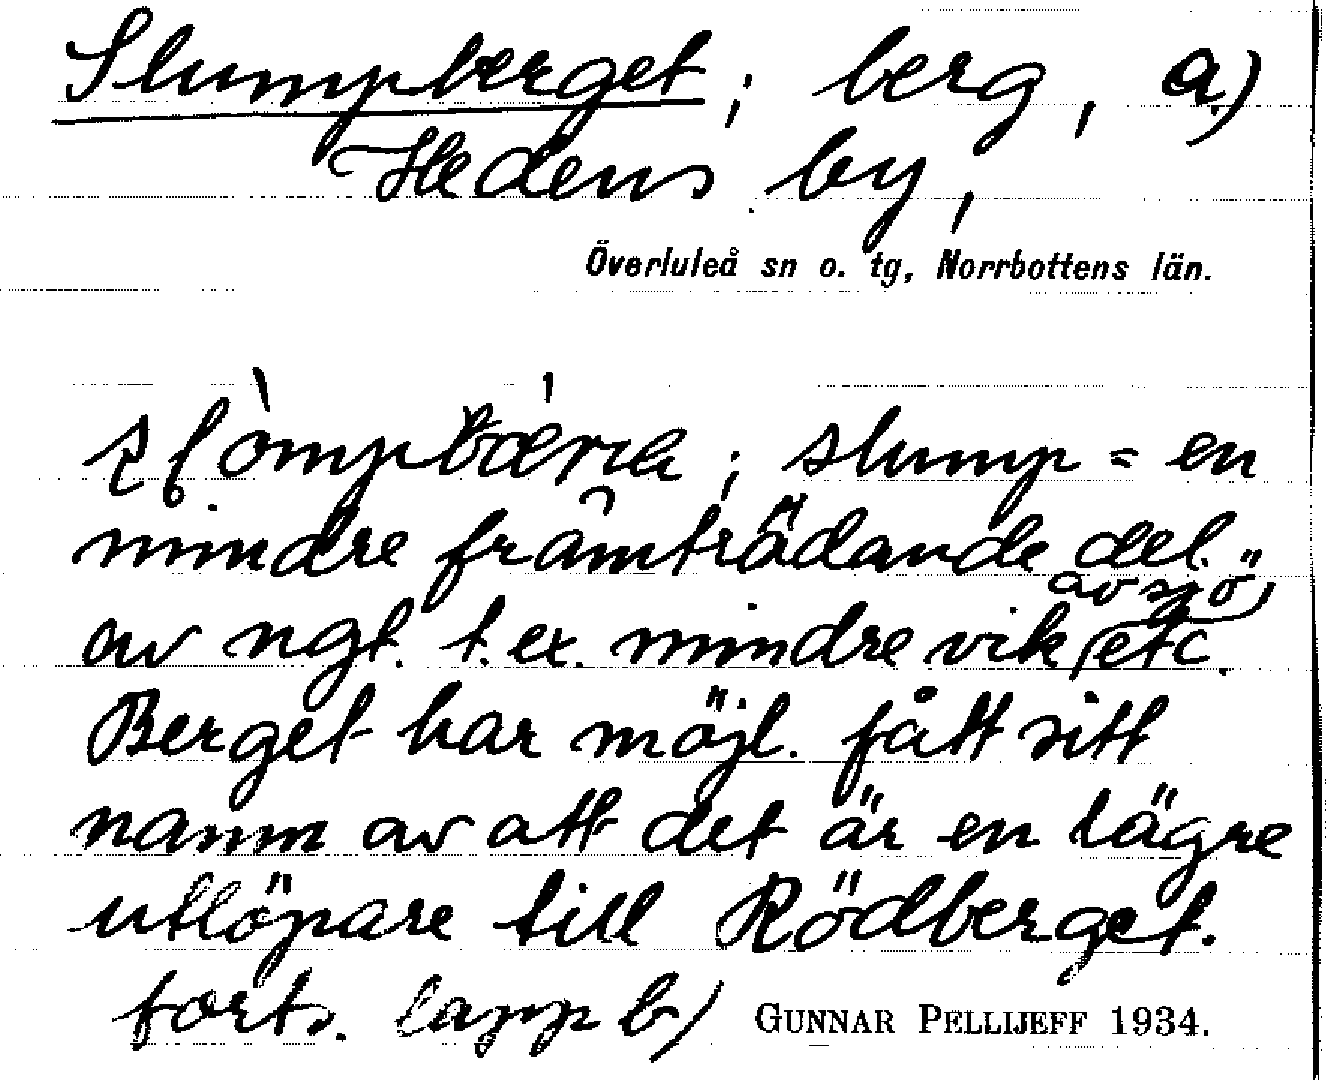 Slumpberget; berg, a)
Hedens by,
Överluleå sn o. tg, Norrbottens län.
; slump = en
mindre framträdande del
av ngt. t.ex. mindre vik av sjö, etc.
Berget har möjl. fått sitt
namn av att det är en lägre
utlöpare till Rödberget.
forts. lapp b) GUNNAR PELLIJEFF 1934.